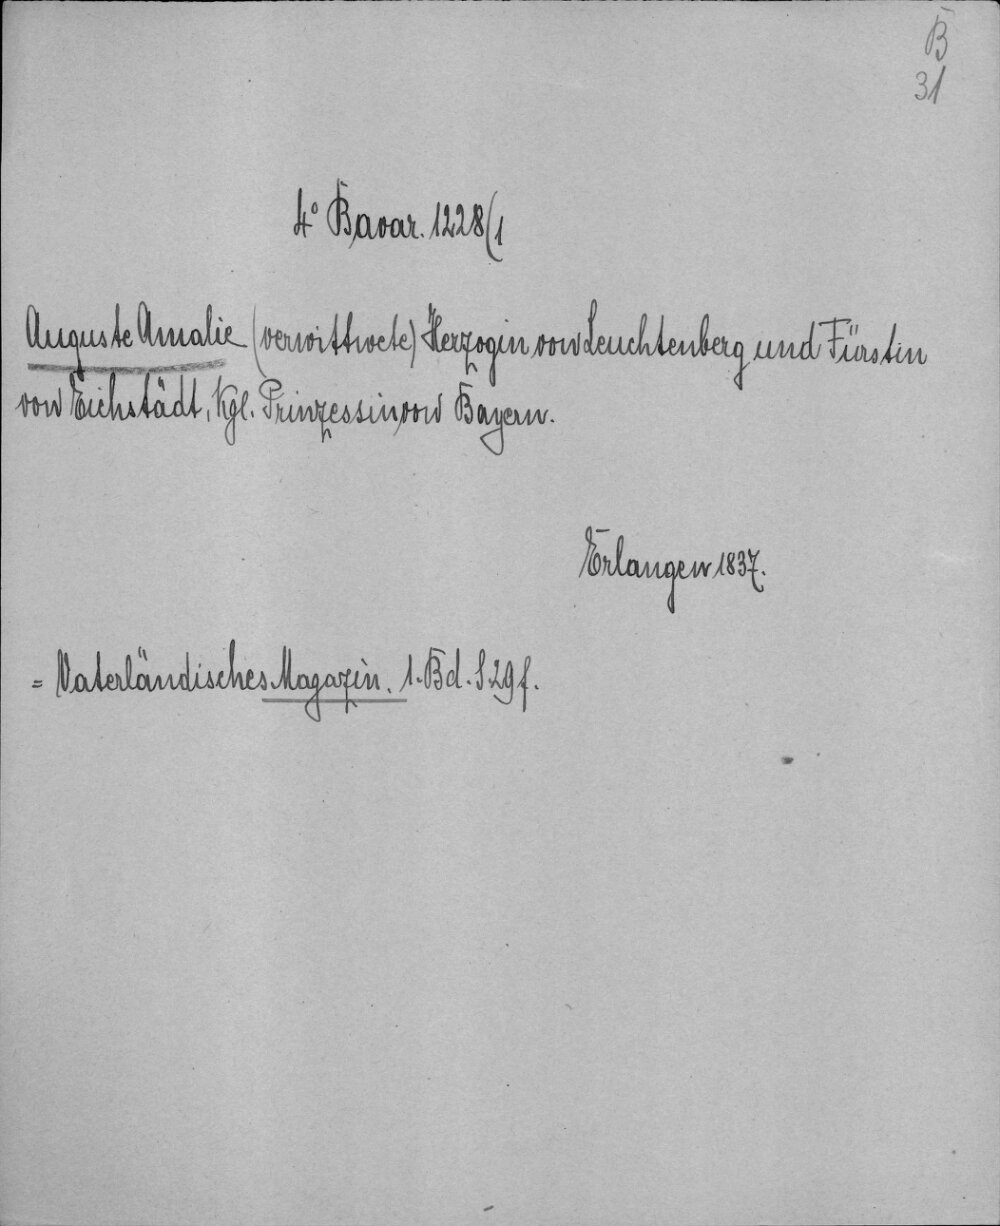 B
31
4° Bavar. 1228(1
Auguste Amalie (verwittwete) Herzogin von Leuchtenberg und Fürstin
von Eichstädt, Kgl. Prinzessin von Bayern.
Erlangen 1837.
= Vaterländisches Magazin. 1. Bd. S. 29 f.